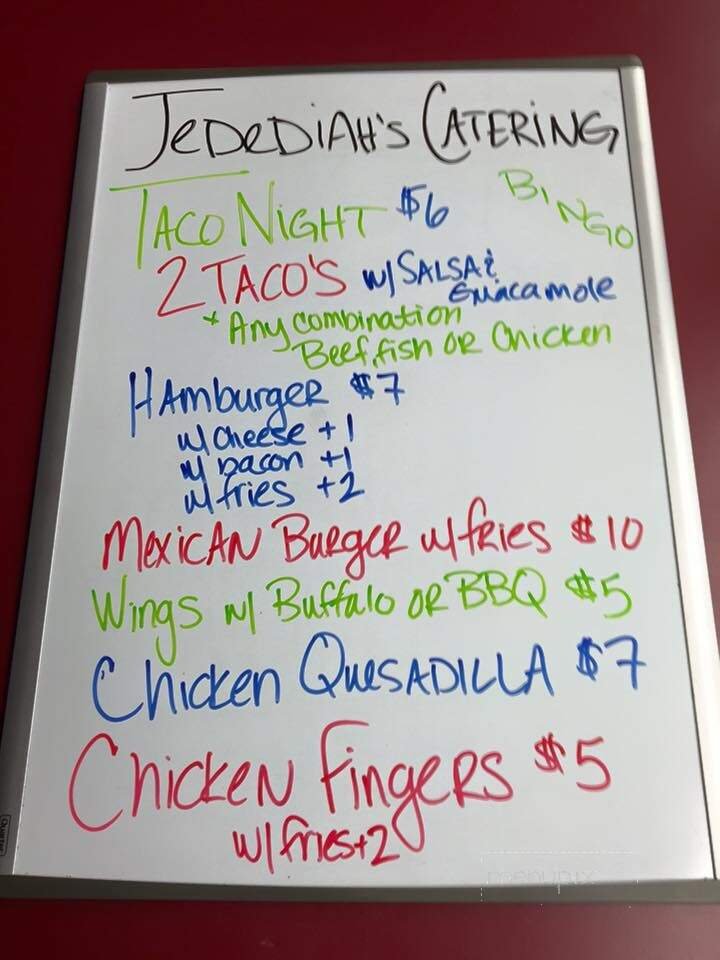 JeDeDiAH's CATERING
TACO NIGHT $6 BINGO
2 TACO'S w/ SALSA &
Guacamole
* Any combination
Beef, fish OR Chicken
HAmburgeR $7
w/ cheese +1
w/ bacon +1
w/ fries +2
MexicAN BuRgeR w/ fRies $10
Wings w/ Buffalo OR BBQ $5
Chicken QuesADILLA $7
ChickeN FingeRs $5
w/ fries +2
Quartet
menupix